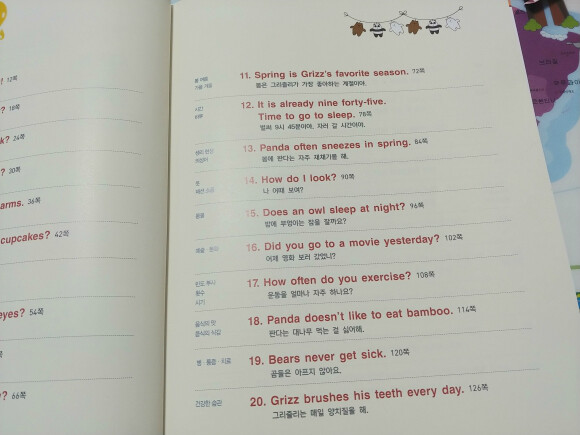 12쪽
? 18쪽
k? 24쪽
? 30쪽
arms. 36쪽
cupcakes? 42쪽
eyes? 54쪽
? 66쪽
11. Spring is Grizz's favorite season. 72쪽
봄은 그리즐리가 가장 좋아하는 계절이야.
시간
12. It is already nine forty-five.
Time to go to sleep. 78쪽
벌써 9시 45분이야. 자러 갈 시간이야.
13. Panda often sneezes in spring. 84쪽
봄에 판다는 자주 재채기를 해.
14. How do I look? 90쪽
나 어때 보여?
동물
15. Does an owl sleep at night? 96쪽
밤에 부엉이는 잠을 잘까요?
16. Did you go to a movie yesterday? 102쪽
어제 영화 보러 갔었니?
빈도 부사
횟수
시기
17. How often do you exercise? 108쪽
운동을 얼마나 자주 하나요?
음식의 맛
음식의 식감
18. Panda doesn't like to eat bamboo. 114쪽
판다는 대나무 먹는 걸 싫어해.
병·통증·치료
19. Bears never get sick. 120쪽
곰들은 아프지 않아요.
건강한 습관
20. Grizz brushes his teeth every day. 126쪽
그리즐리는 매일 양치질을 해.